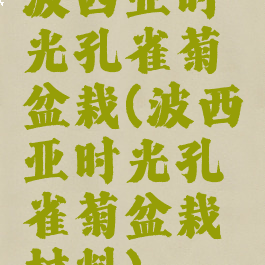 波西亚时
光孔雀菊
盆栽(波西
亚时光孔
雀菊盆栽
材料)